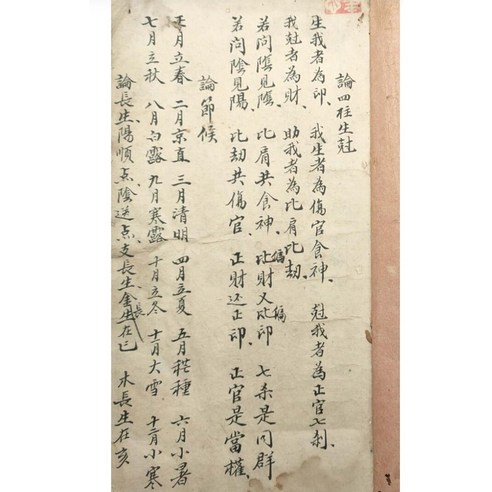 論四柱生尅
生我者為印、我生者為傷官食神、尅我者為正官七刹、
我尅者為財、助我者為比肩比劫、
若問陰見陰、比肩共食神、偏財又偏印 七杀是同群
若問陰見陽、比劫共傷官、正財还正印、正官是當權、
論節候
正月立春 二月京直 三月清明 四月立夏 五月芒種 六月小暑
七月立秋 八月白露 九月寒露 十月立冬 十一月大雪 十二月小寒
論長生陽順点陰逆点支長生金長生在巳 木長生在亥